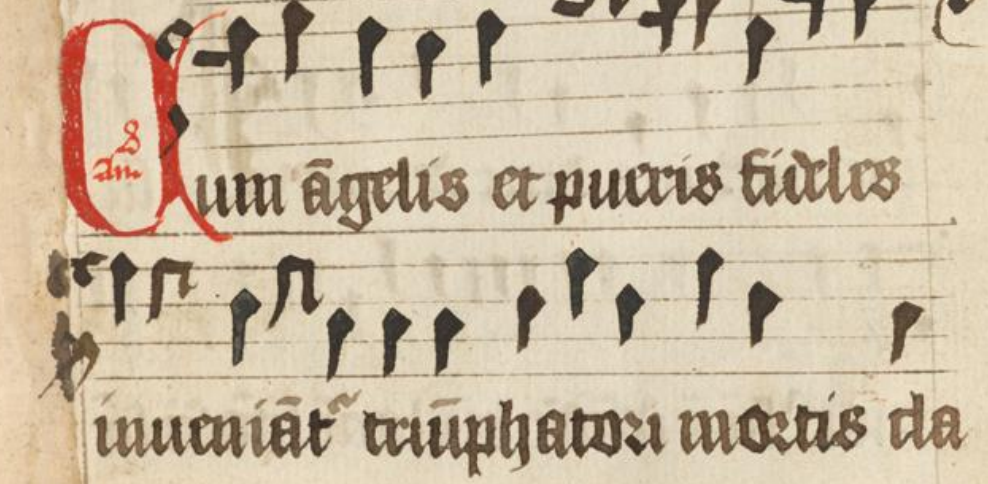 Cum āgelis et pueris fideles
inueniāt᷑ triūphatori mortis cla